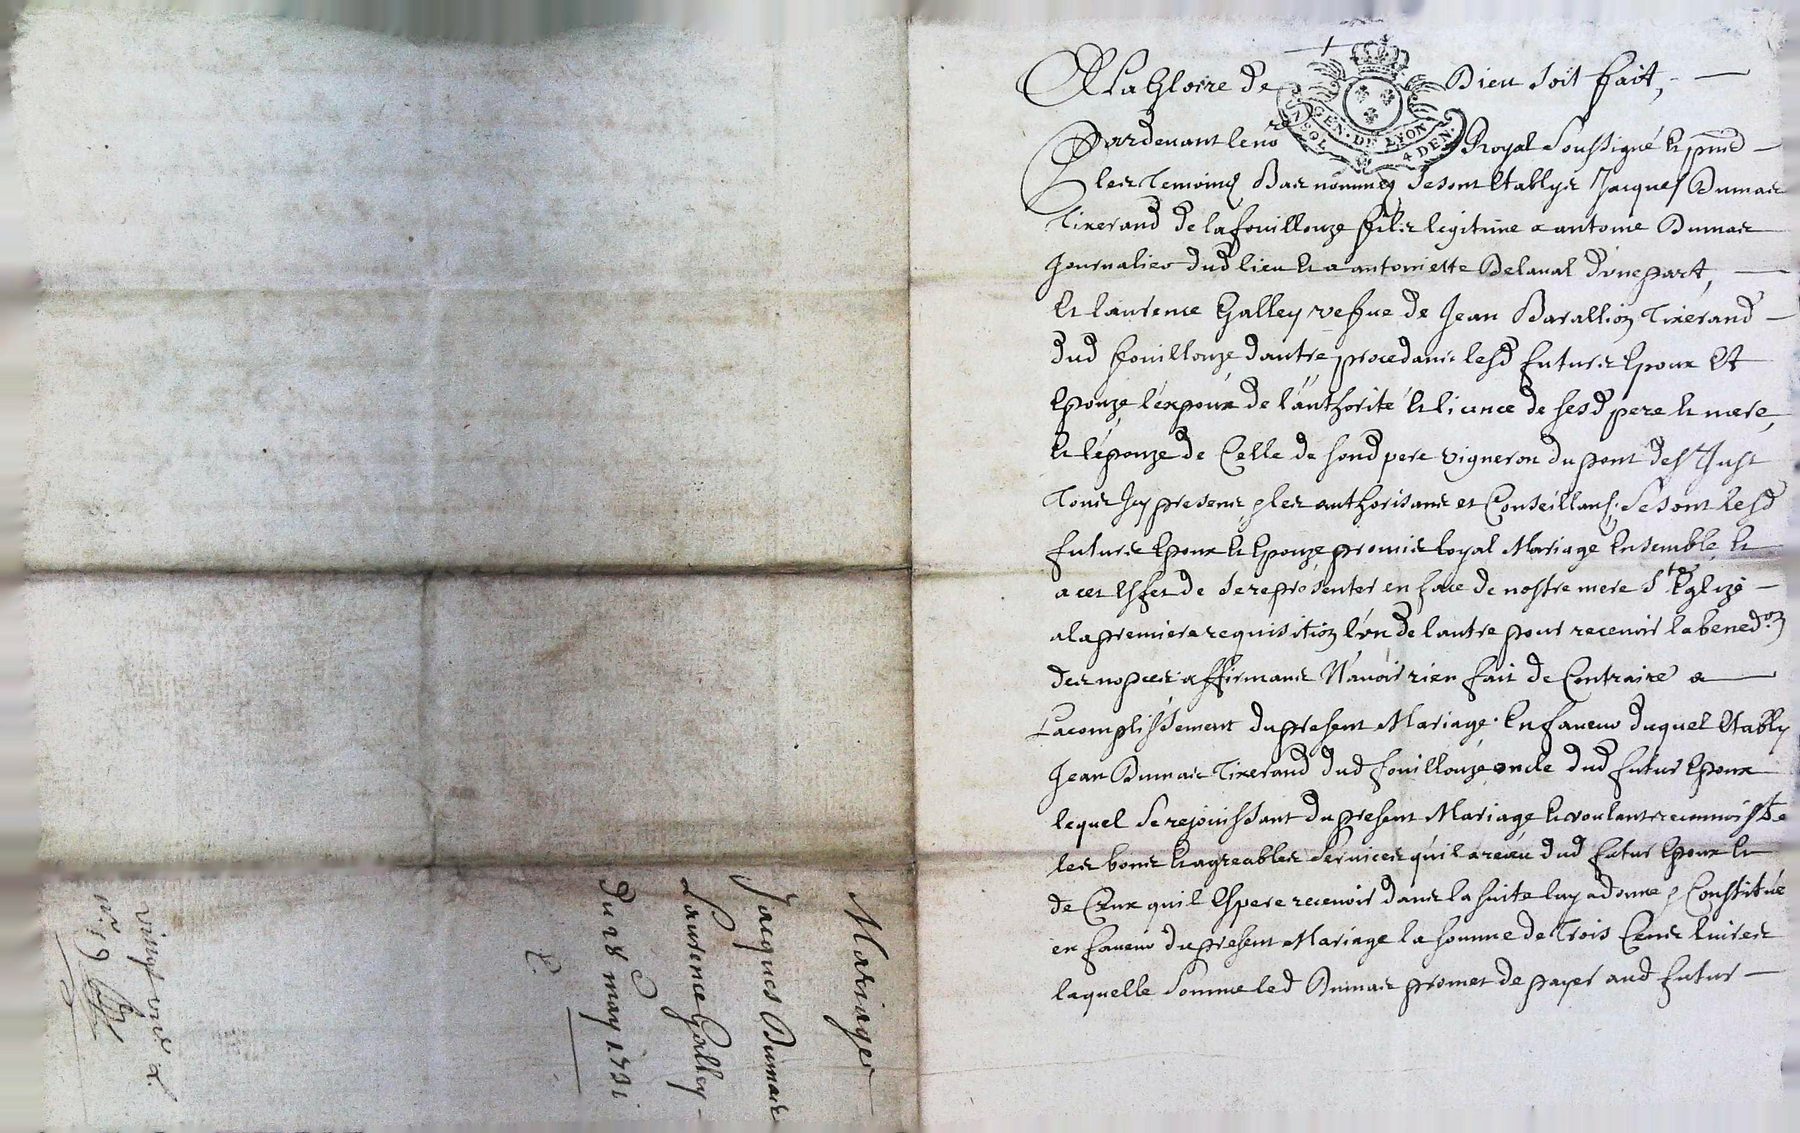 A La Gloire de Dieu soit fait,
GEN. DE LYON
4 DEN.
Pardevant le no.re Royal soussigné et pnd
les Temoins Bas nommez se sont Etablys Jacques Dumas
Tixerand de la fouillouze fils legitime a antoine Dumas
Journalier dud lieu et a antoinette Delaval d'une part,
Et laurence Galley vefve de Jean Barallion Tixerand
dud fouillouze d'autre, procedans lesd futurs Epoux Et
Epouze, l'expoux de l'authorité et licance de sesd pere et mere,
et l'epouze de Celle de sond pere vigneron du pont de St Just
Tous Icy presens, les authorisans et Conseillans, Se sont lesd
futurs Epoux et Epouze promis loyal Mariage Ensemble, et
a cet Effet de se representer en face de nostre mere Ste Eglize
a la premiere requisition l'un de l'autre pour recevoir la bened.on
des nopces affirmans N'avoir rien fait de Contraire a
L'acomplissement du present Mariage. En faveur duquel Etably
Jean Dumas Tixerand dud fouillouze oncle dud futur Epoux
lequel se rejouissant du present Mariage et voulant reconnoistre
les bons et agreables services qu'il a receu dud futur Epoux et
de Ceux qu'il Espere recevoir dans la suite luy a donné & Constitué
en faveur du present Mariage la somme de Trois Cens livres
laquelle somme led Dumas promet de payer aud futur
Mariage
Jacques Dumas
Laurence Galley
Du 28 may 1731
vingt une
n° 19